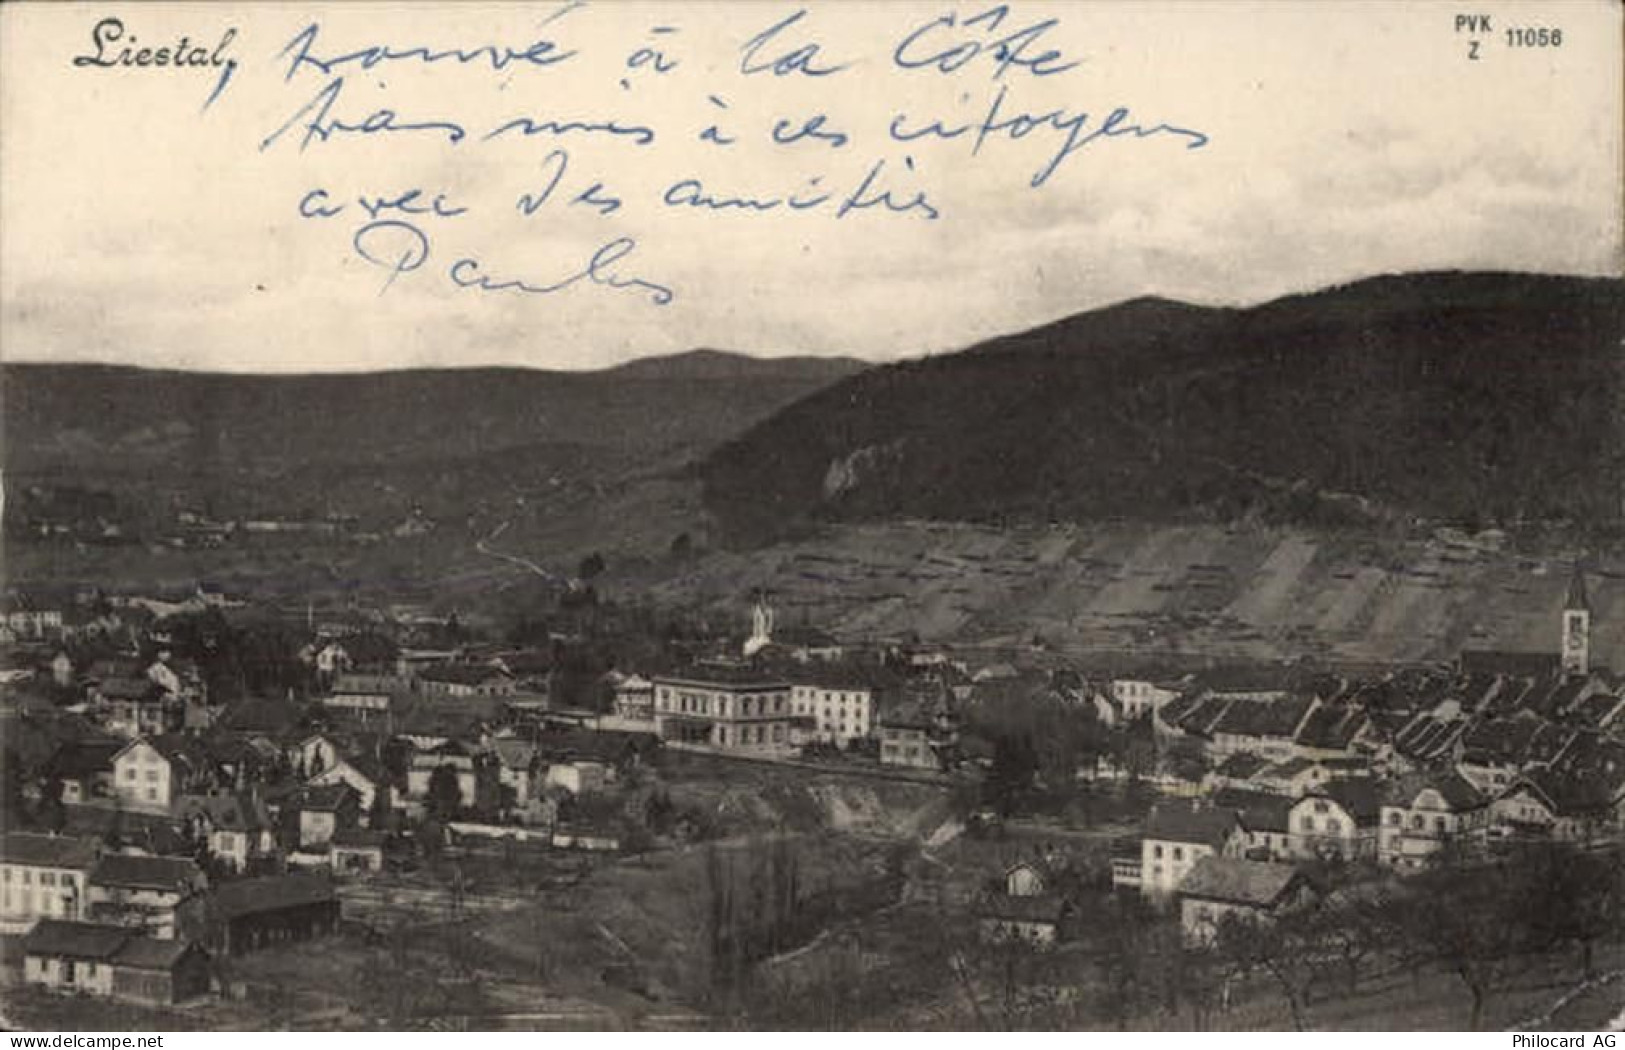 Liestal,
trouvé à la Côte
PVK
Z 11056
à ces citoyens
avec des amitiés
www.delcampe.net
Philocard AG